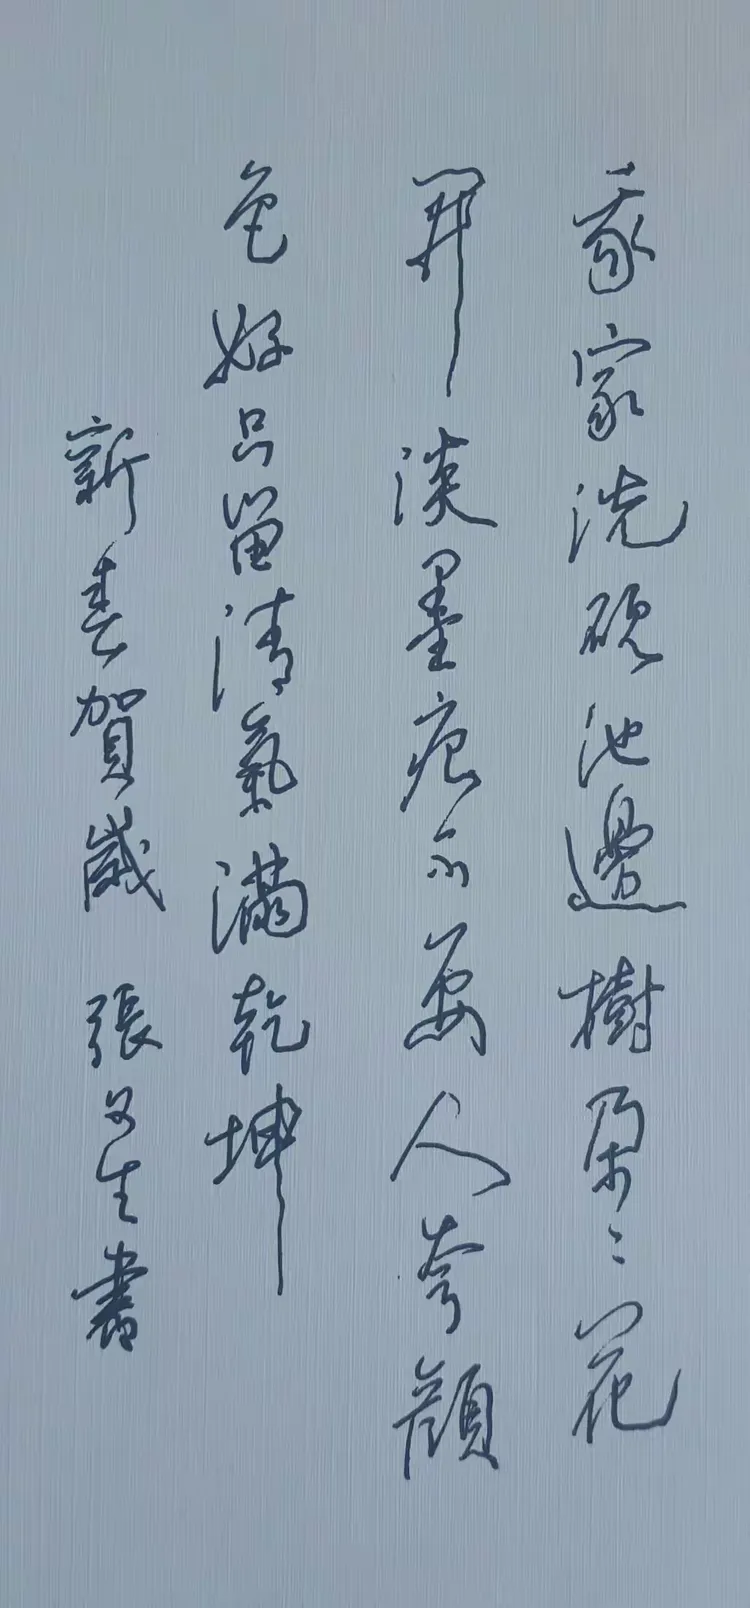 我家洗硯池邊樹朵〻花
開淡墨痕不要人夸顏
色好只留清氣滿乾坤
新春賀歲 張文生書